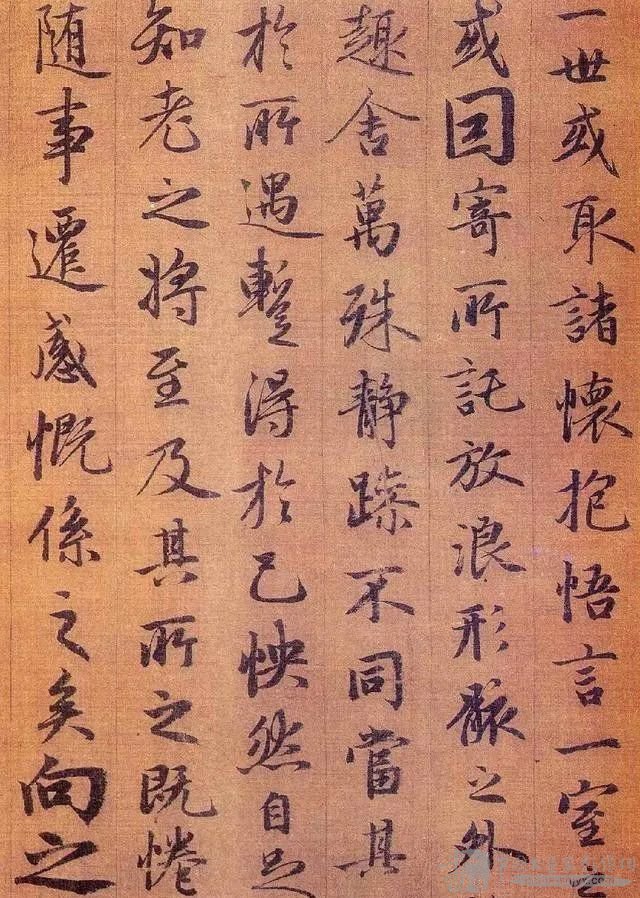 一世或取諸懷抱悟言一室之
或因寄所託放浪形骸之外
趣舍萬殊静躁不同當其
於所遇蹔得於己怏然自足
知老之將至及其所之既惓
随事遷感慨係之矣向之